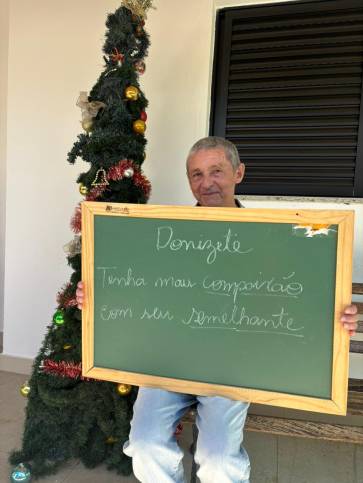 Donizete
Tenha mais compaixão
com seu semelhante